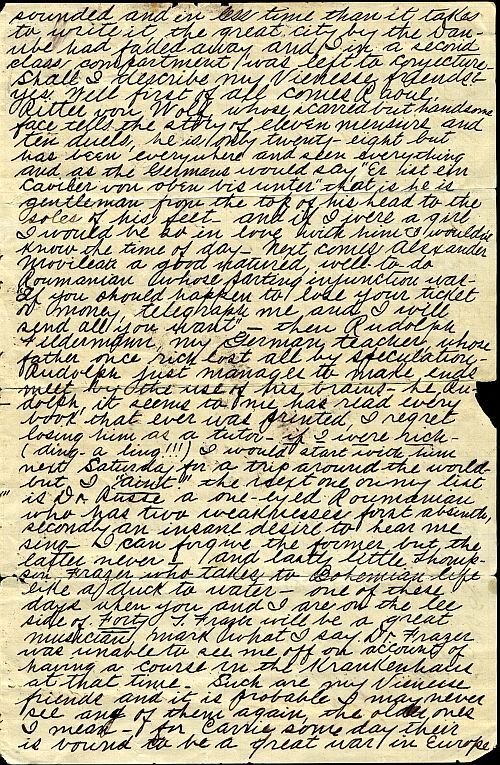 sounded and in less time than it takes
to write it, the great city by the Dan-
ube had faded away and I in a second
class compartment was left to conjecture-
Shall I describe my Viennese friends?-
yes. Well first of all comes Raoul
Ritter von Wolf, whose scarred but handsome
face tells the story of eleven mensurs and
ten duels, he is only twenty-eight but
has been everywhere and seen everything
and as the Germans would say "Er ist ein
Cavilier von oben bis unter" that is he is
gentleman from the top of his head to the
soles of his feet- and if I were a girl
I would be so in love with him I wouldn't
know the time of day- Next comes Alexander
Movileati a good natured, well-to-do
Roumanian whose parting injunction was-
"If you should happen to lose your ticket
or money, telegraph me and I will
send all you want"- then Rudolph
Fildermann, my German teacher, whose
father once rich lost all by speculation-
Rudolph just manages to make ends
meet by the use of his brains- he Ru-
dolph, it seems to me has read every
book that ever was printed, I regret
losing him as a tutor- if I were rich-
(ding-a ling!!!) I would start with him
next Saturday for a trip around the world-
but, I "aint" the next one on my list
is Dr. Russe a one-eyed Roumanian
who has two weaknesses first absinth,
secondly an insane desire to hear me
sing- I can forgive the former but the
latter never- and lastly little Thomp-
son Frazer who takes to Bohemian life
like a duck to water- one of these
days when you and I are on the lee
side of Forty T. Frazer will be a great
musician, mark what I say Dr. Frazer
was unable to see me off on account of
having a course in the Krankenhaus
at that time- Such are my Vienese
friends and it is probable I may never
see any of them again, the older ones
I mean- for Carrie some day their
is bound to be a great war in Europe